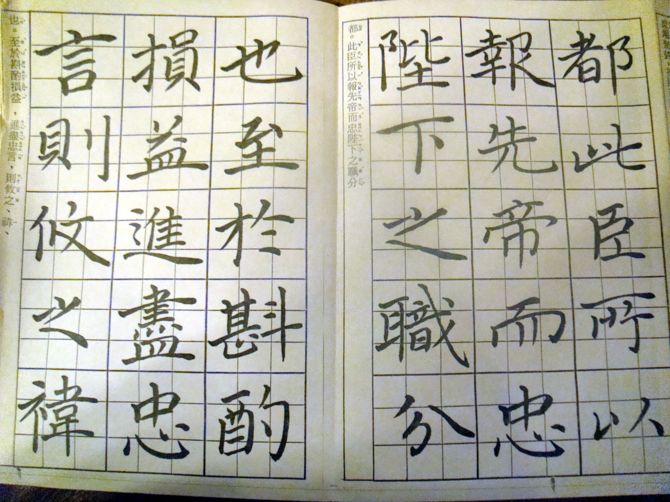 都此臣所以
報先帝而忠
陛下之職分
都。此臣所以報先帝而忠陛下之職分
也至於斟酌
損益進盡忠
言則攸之禕
也。至於斟酌損益，進盡忠言，則攸之、禕、